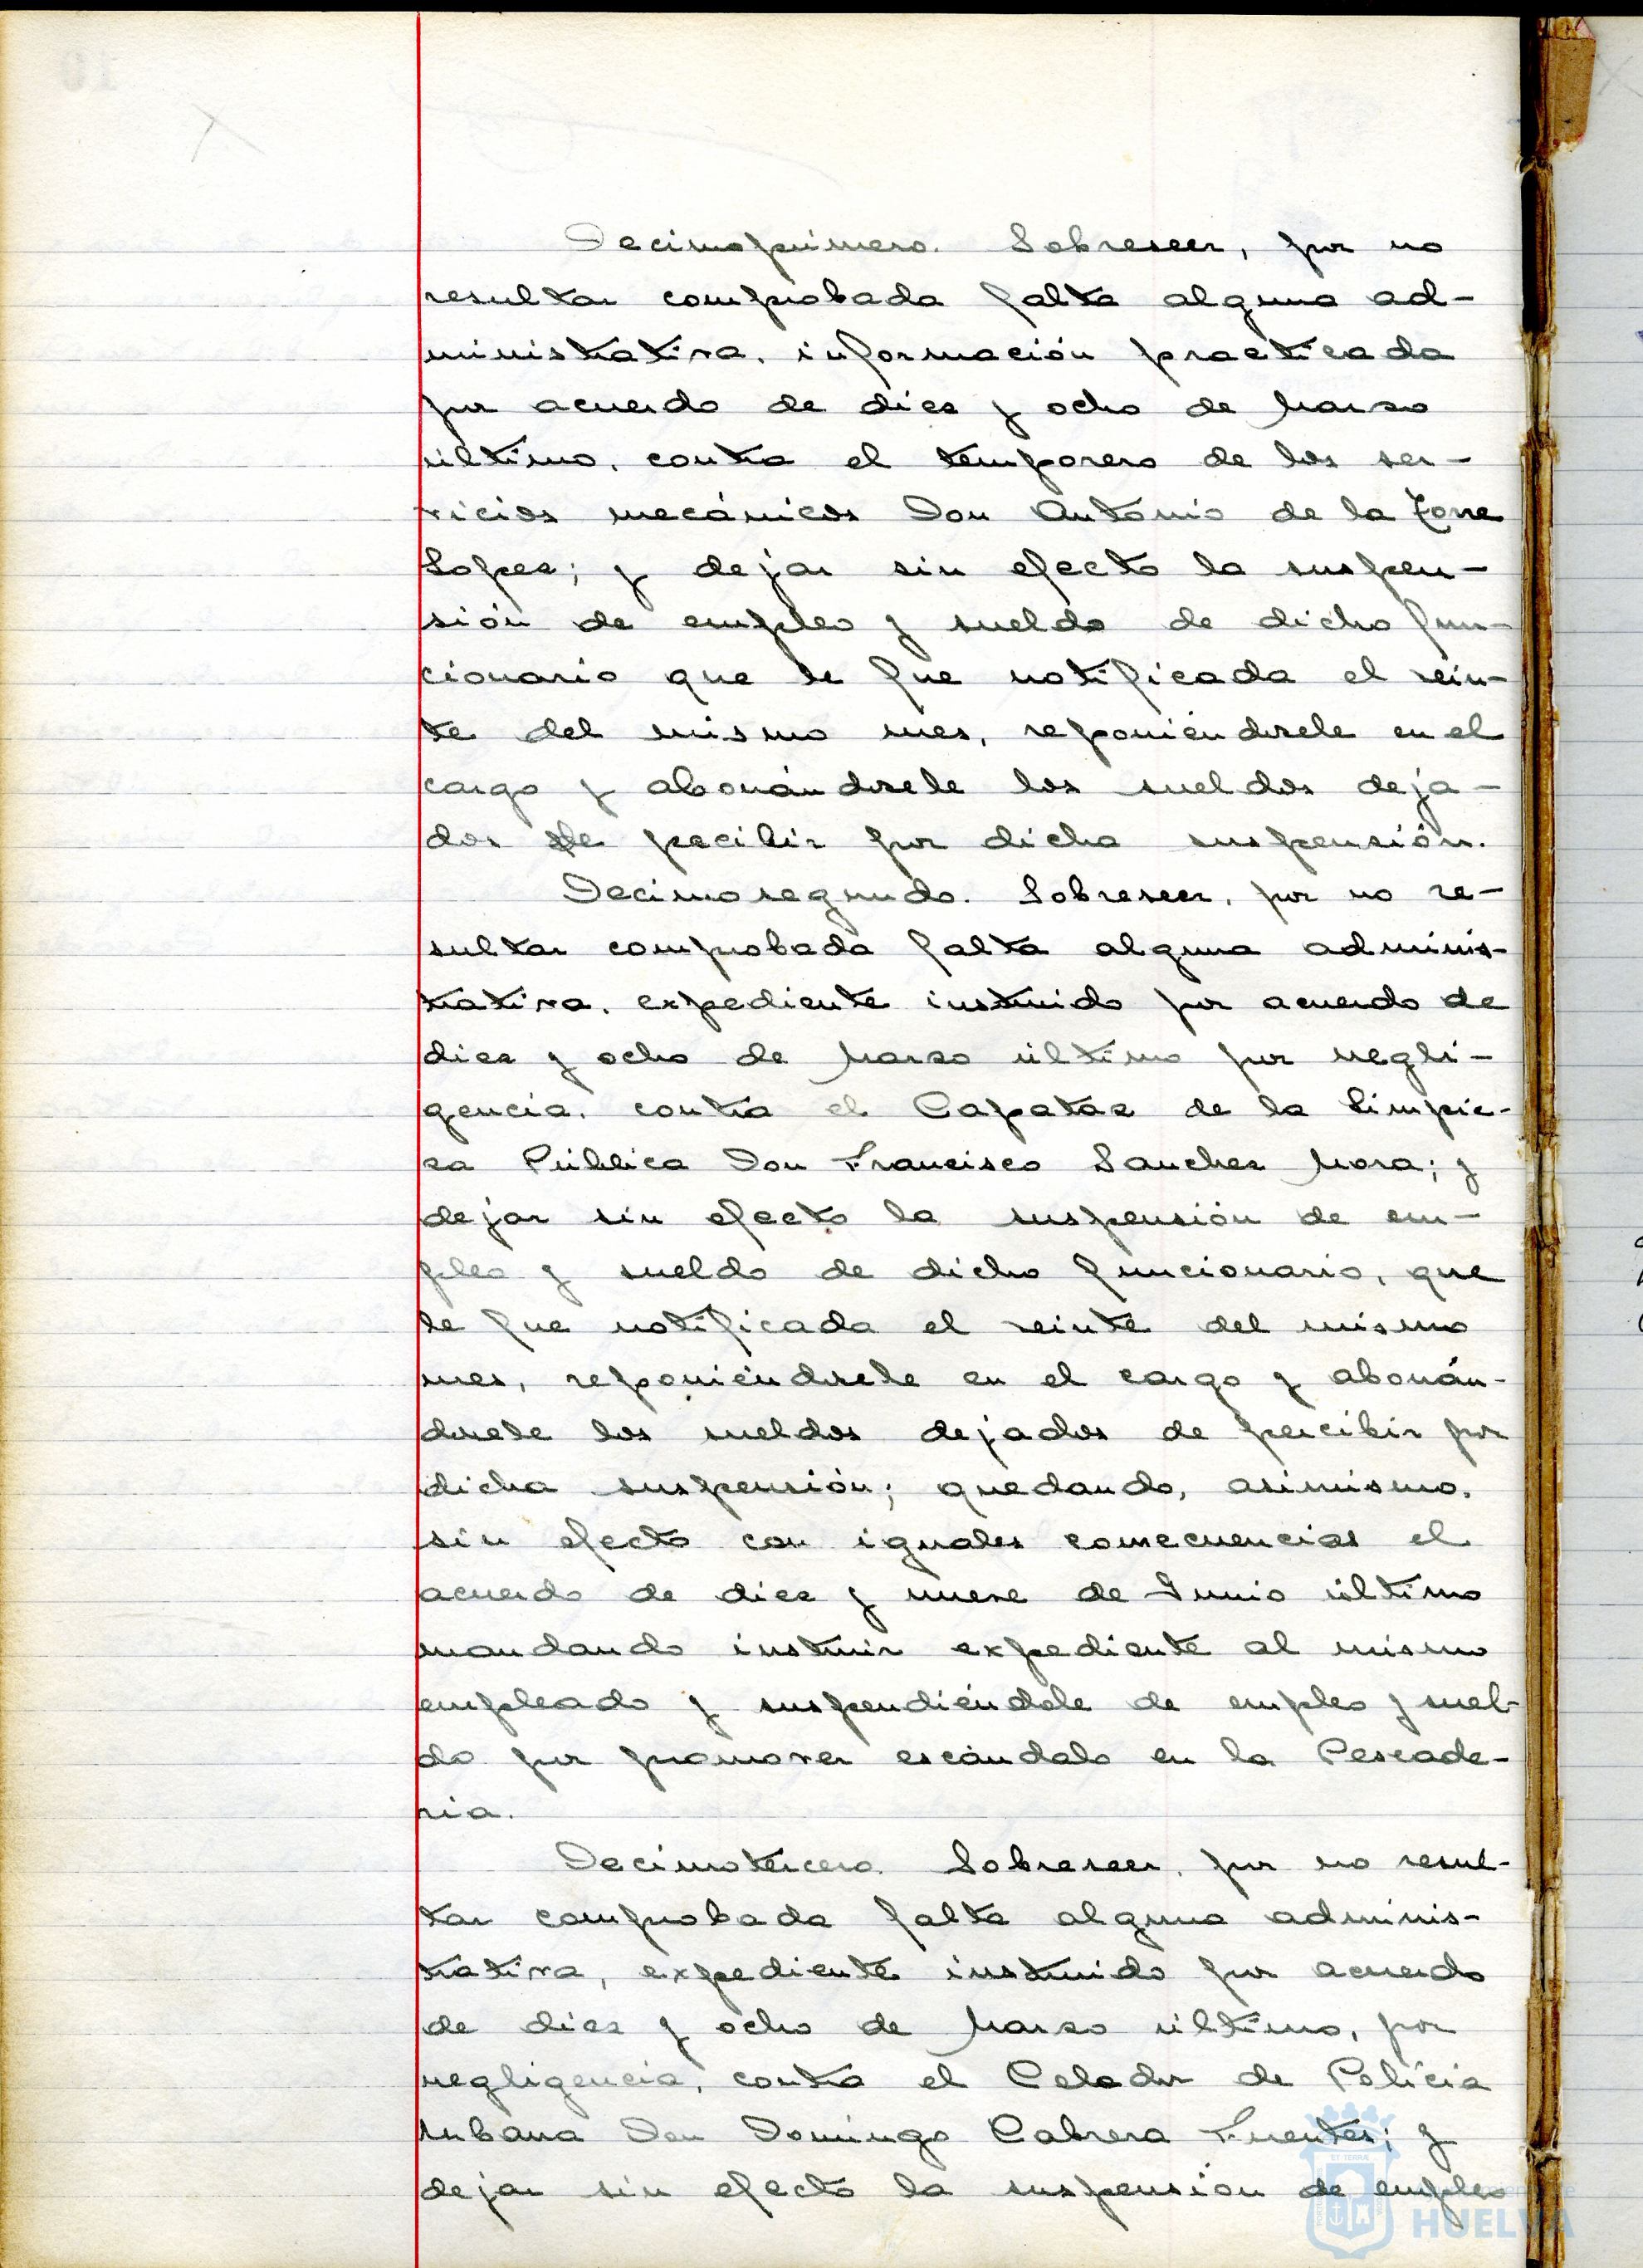 Decimoprimero. Sobreseer, por no
resultar comprobada falta alguna ad-
ministrativa, información practicada
por acuerdo de diez y ocho de Marzo
último, contra el temporero de los ser-
vicios mecánicos Don Antonio de la Torre
Lopez; y dejar sin efecto la suspen-
sión de empleo y sueldo de dicho fun-
cionario que le fue notificada el vein-
te del mismo mes, reponiéndosele en el
cargo y abonándosele los sueldos deja-
dos de pecibir por dicha suspensión.
Decimosegundo. Sobreseer, por no re-
sultar comprobada falta alguna adminis-
trativa, expediente instruido por acuerdo de
diez y ocho de Marzo último por negli-
gencia, contra el Capataz de la Limpie-
za Pública Don Francisco Sanchez Mora; y
dejar sin efecto la suspensión de em-
pleo y sueldo de dicho funcionario, que
le fue notificada el veinte del mismo
mes, reponiéndosele en el cargo y abonán-
dosele los sueldos dejados de percibir por
dicha suspensión; quedando, asimismo,
sin efecto con iguales consecuencias el
acuerdo de diez y nueve de Junio último
mandando instruir expediente al mismo
empleado y suspendiéndole de empleo y suel-
do por promover escándalo en la Pescade-
ria.
Decimotercero. Sobreseer, por no resul-
tar comprobada falta alguna adminis-
trativa, expediente instruido por acuerdo
de diez y ocho de Marzo último, por
negligencia, contra el Celador de Policía
urbana Don Domingo Cabrera Fuentes; y
dejar sin efecto la suspensión de empleo
HUELVA